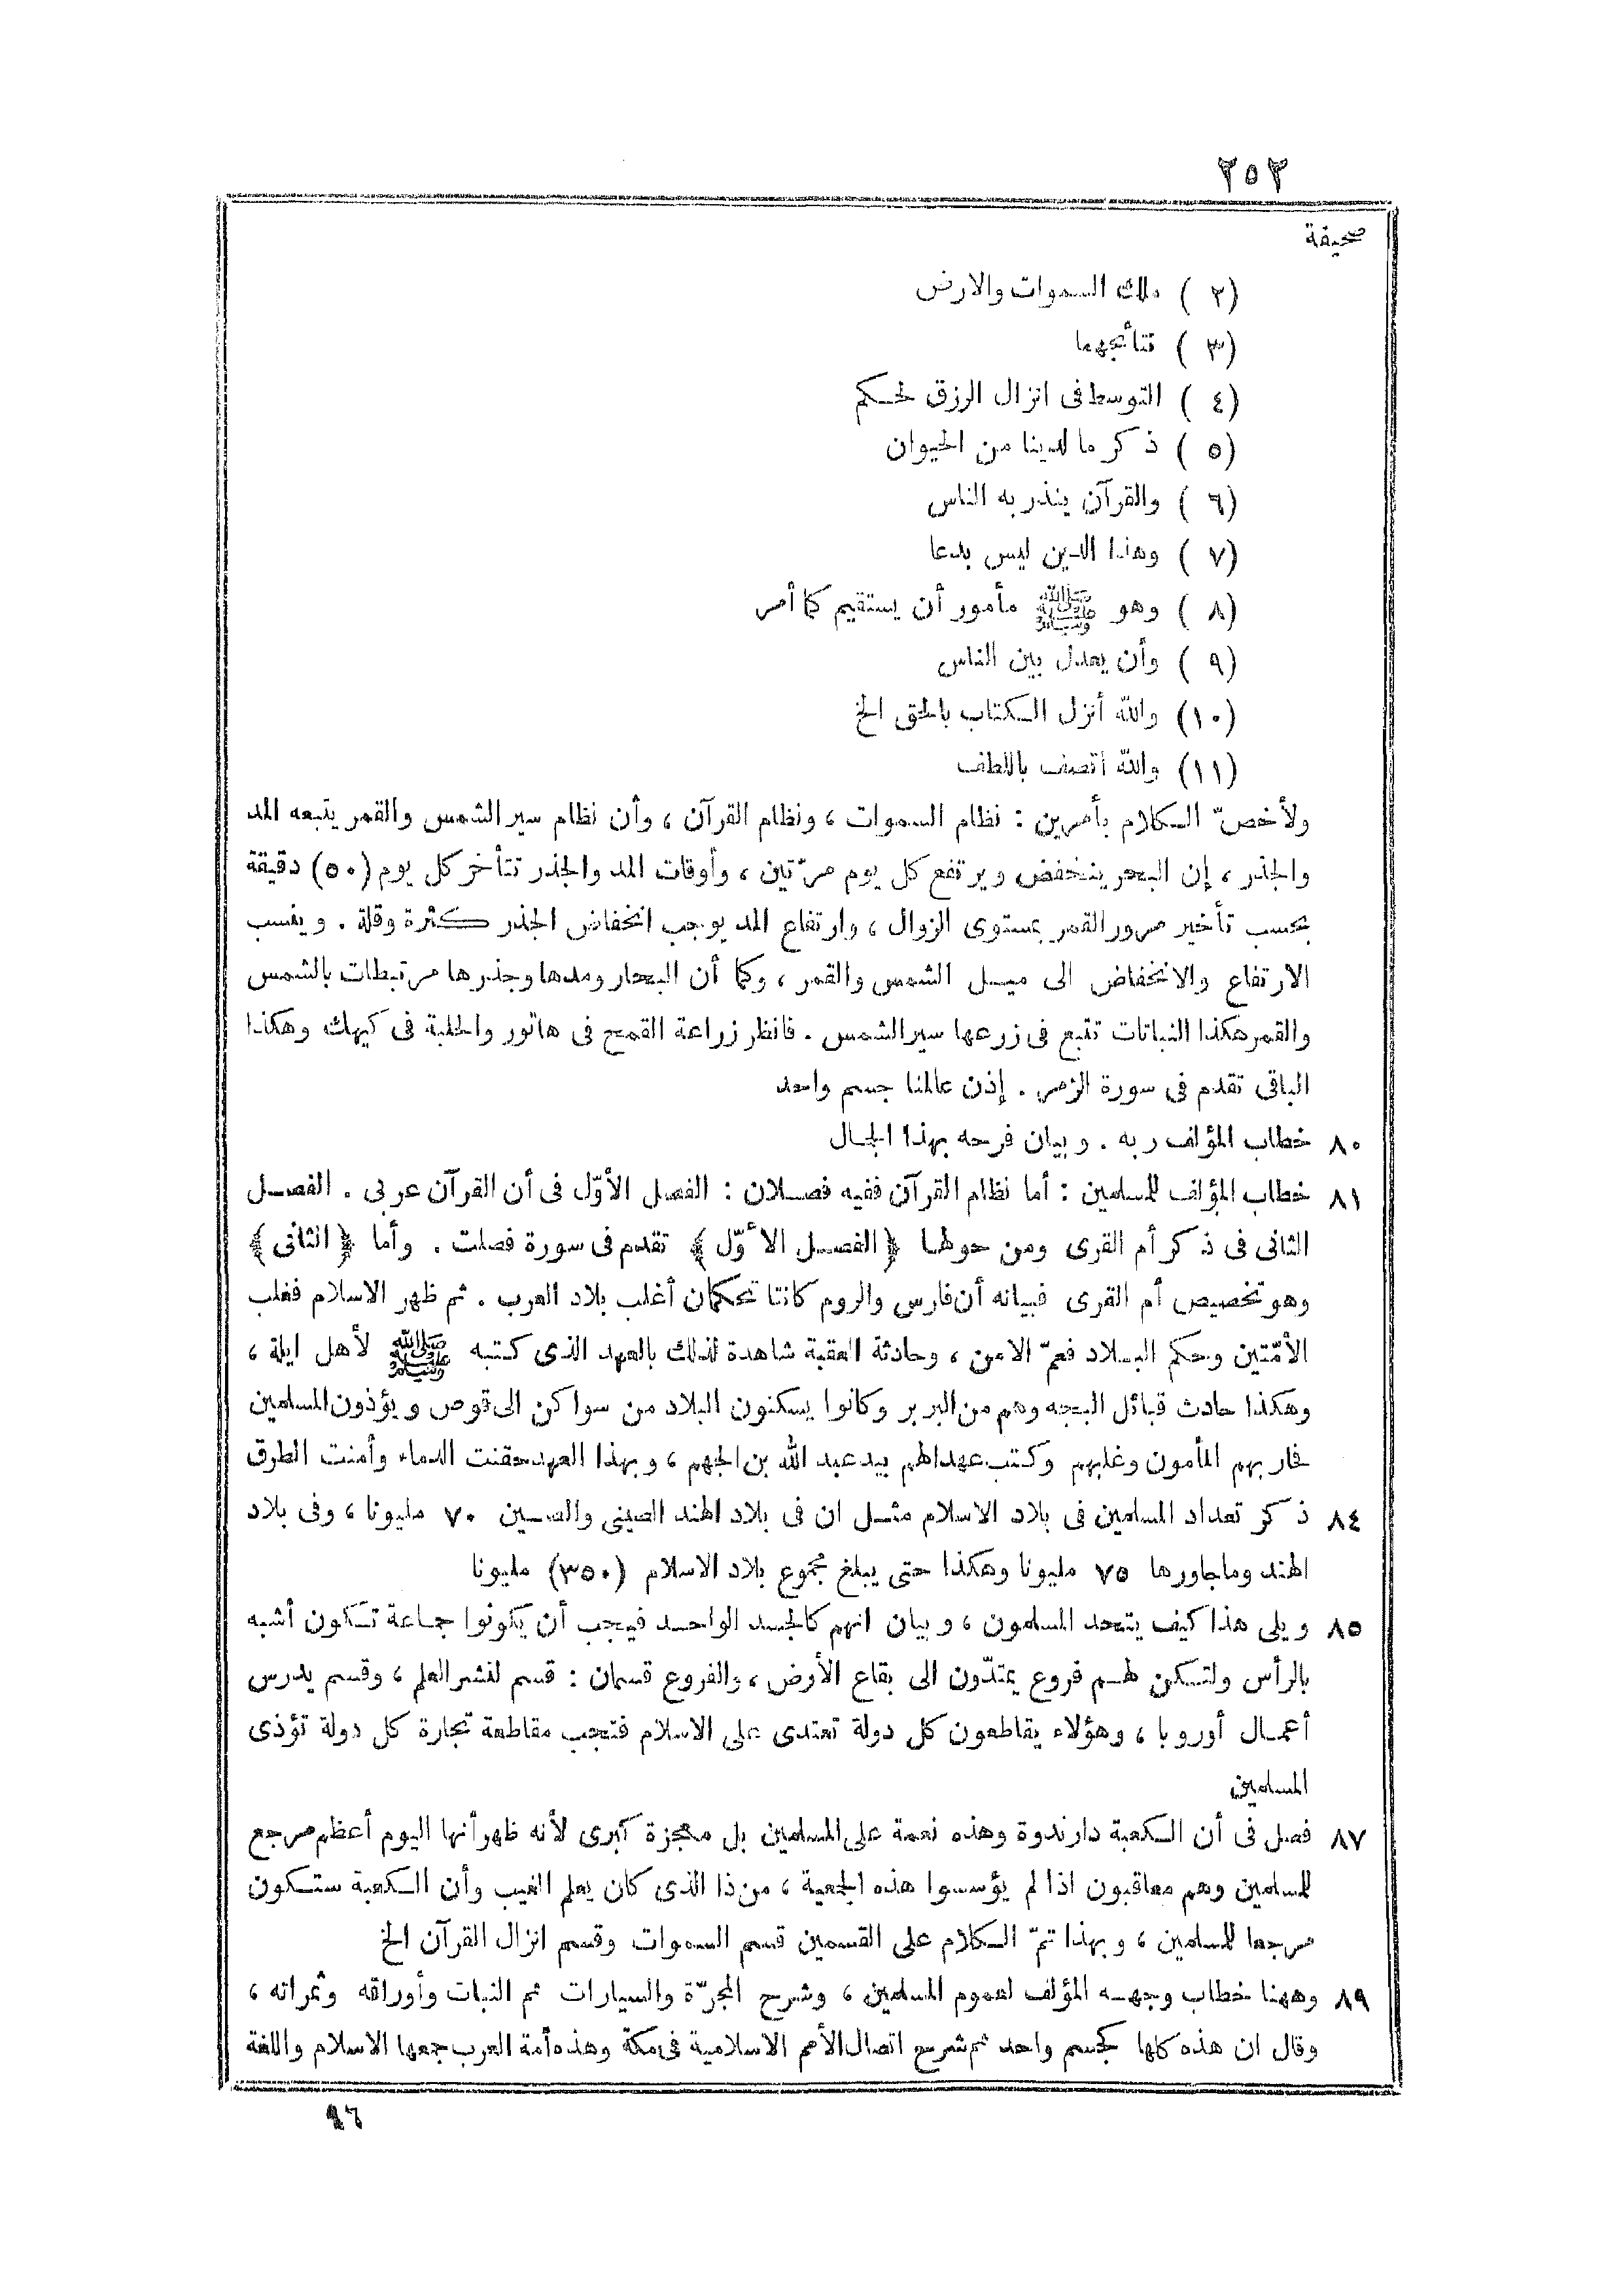 ٢٥٣
صحيفة
(٢) ملك السموات والارض
(٣) نتائجهما
(٤) التوسط فى انزال الرزق لحكم
(٥) ذكر ما لدينا من الحيوان
(٦) والقرآن ينذر به الناس
(٧) وهذا الدين ليس بدعا
(٨) وهو ﷺ مأمور أن يستقيم كما أمر
(٩) وأن يعدل بين الناس
(١٠) والله أنزل الكتاب بالحق الخ
(١١) والله اتصف باللطف
ولأخصّ الكلام بأمرين : نظام السموات ، ونظام القرآن ، وأن نظام سير الشمس والقمر يتبعه المد
والجذر ، إن البحر ينخفض ويرتفع كل يوم مرّتين ، وأوقات المد والجذر تتأخر كل يوم (٥٠) دقيقة
بحسب تأخير مرور القمر بمستوى الزوال ، وارتفاع المد يوجب انخفاض الجذر كثرة وقلة . وينسب
الارتفاع والانخفاض الى ميل الشمس والقمر ، وكما أن البحار ومدها وجذرها مرتبطات بالشمس
والقمر هكذا النباتات تتبع فى زرعها سير الشمس . فانظر زراعة القمح فى هاتور والحلبة فى كيهك وهكذا
الباقى تقدم فى سورة الزمر . إذن عالمنا جسم واحد
٨٠ خطاب المؤلف ربه . وبيان فرحه بهذا الجمال
٨١ خطاب المؤلف للمسلمين : أما نظام القرآن ففيه فصلان : الفصل الأوّل فى أن القرآن عربى . الفصل
الثانى فى ذكر أم القرى ومن حولها ﴿الفصل الأوّل﴾ تقدم فى سورة فصلت . وأما ﴿الثانى﴾
وهو تخصيص أم القرى فبيانه أن فارس والروم كانتا تحكمان أغلب بلاد العرب . ثم ظهر الاسلام فغلب
الأمّتين وحكم البلاد فعمّ الامن ، وحادثة العقبة شاهدة لذلك بالعهد الذى كتبه ﷺ لأهل ايلة ،
وهكذا حادث قبائل البجه وهم من البربر وكانوا يسكنون البلاد من سواكن الى قوص ويؤذون المسلمين
فحاربهم المأمون وغلبهم وكتب عهدا لهم بيد عبد الله بن الجهم ، وبهذا العهد حقنت الدماء وأمنت الطرق
٨٤ ذكر تعداد المسلمين فى بلاد الاسلام مثل ان فى بلاد الهند الصينى والصين ٧٠ مليونا ، وفى بلاد
الهند وما جاورها ٧٥ مليونا وهكذا حتى يبلغ مجموع بلاد الاسلام (٣٥٠) مليونا
٨٥ ويلى هذا كيف يتحد المسلمون ، وبيان انهم كالجسد الواحد فيجب أن يكونوا جماعة تكون أشبه
بالرأس ولتكن لهم فروع يمتدّون الى بقاع الأرض ، والفروع قسمان : قسم لنشر العلم ، وقسم يدرس
أعمال أوروبا ، وهؤلاء يقاطعون كل دولة تعتدى على الاسلام فتجب مقاطعة تجارة كل دولة تؤذى
المسلمين
٨٧ فصل فى أن الكعبة دار ندوة وهذه نعمة على المسلمين بل معجزة كبرى لأنه ظهر أنها اليوم أعظم مرجع
للمسلمين وهم معاقبون اذا لم يؤسسوا هذه الجمعية ، من ذا الذى كان يعلم الغيب وأن الكعبة ستكون
مرجعا للمسلمين ، وبهذا تمّ الكلام على القسمين قسم السموات وقسم انزال القرآن الخ
٨٩ وههنا خطاب وجهه المؤلف لعموم المسلمين ، وشرح المجرّة والسيارات ثم النبات وأوراقه وثمراته ،
وقال ان هذه كلها كجسم واحد ثم شرح اتصال الأمم الاسلامية فى مكة وهذه أمة العرب جمعها الاسلام واللغة
٩٦